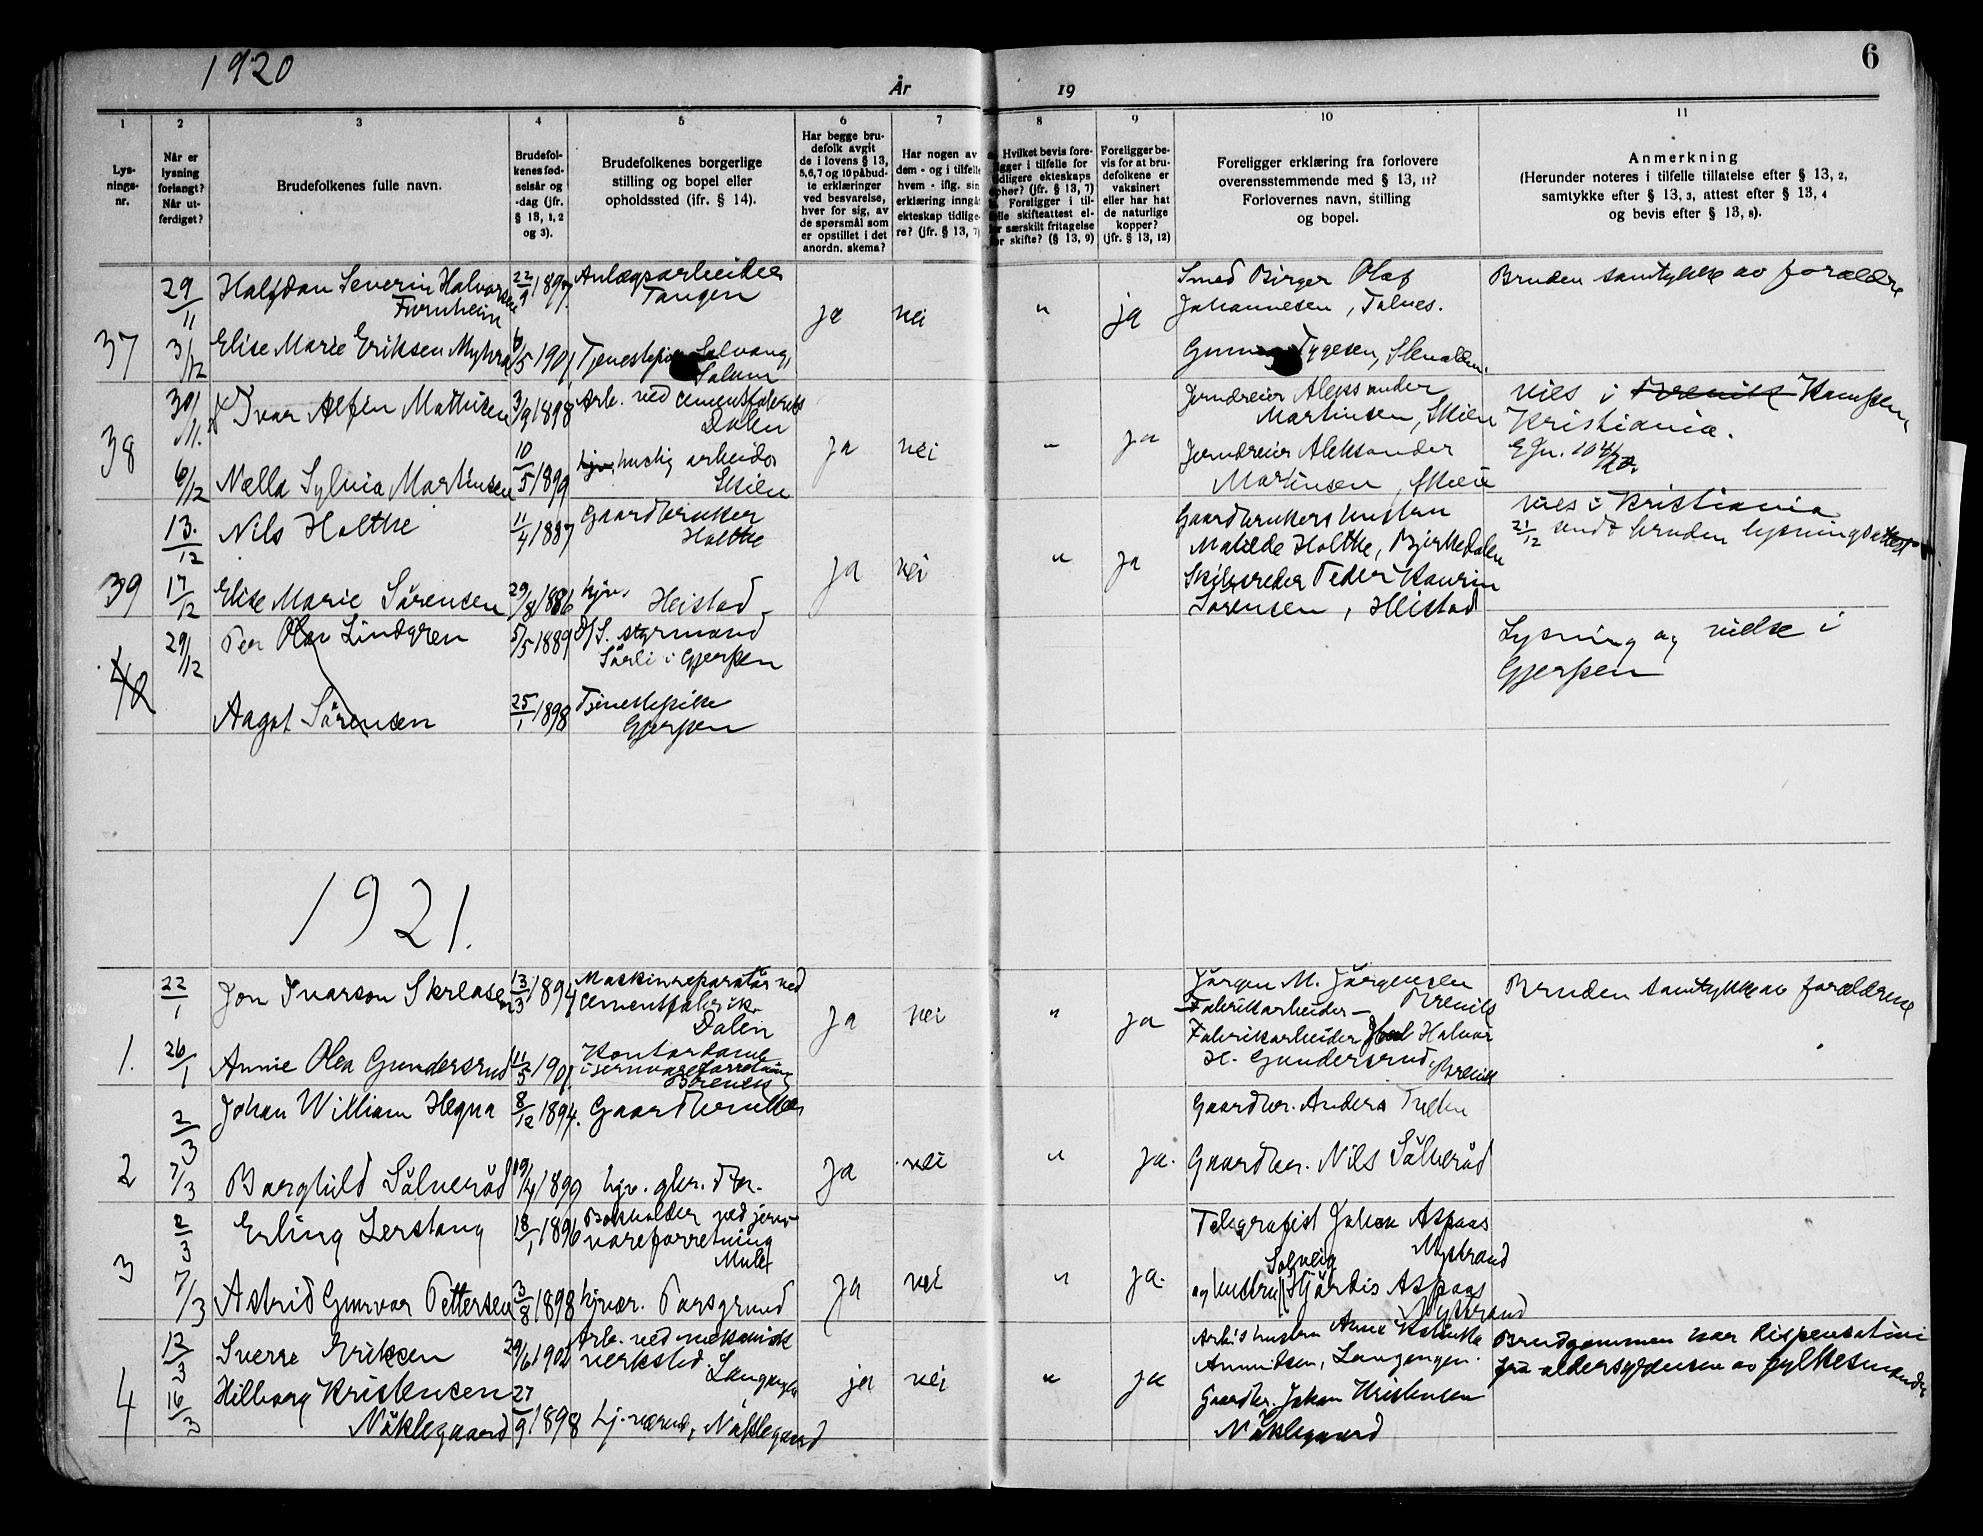 1920
År
19
6
1
2
3
4
5
6
7
8
9
10
11
Lys-
nings-
nr.
Når er
lysning
forlangt?
Når ut-
ferdiget?
Brudefolkenes fulle navn.
Brudefol-
kenes fød-
selsår og
-dag (jfr.
§ 13, 1, 2
og 3).
Brudefolkenes borgerlige
stilling og bopel eller
opholdssted (ifr. § 14).
Har begge bru-
defolk avgit
de i lovens § 13,
5,6,7 og 10 påbud-
te erklæringer
ved besvarelse,
hver for sig, av
de spørsmål som
er opstillet i det
anordn. skema?
Har nogen av
dem - og i tilfelle
hvem - iflg. sin
erklæring inngåt
ekteskap tidlige-
re? (jfr. § 13, 7)
Hvilket bevis fore-
ligger i tilfelle for
tidligere ekteskaps
ophør? (jfr. § 13, 7)
Foreligger i til-
felle skifteattest el-
ler særskilt fritagelse
for skifte? (§ 13, 9)
Foreligger be-
vis for at bru-
defolkene er
vaksinert
eller har hat
de naturlige
kopper?
(jfr. § 13, 12)
Foreligger erklæring fra forlovere
overensstemmende med § 13, 11?
Forlovernes navn, stilling
og bopel.
Anmerkning
(Herunder noteres i tilfelle tillatelse efter § 13, 2,
samtykke efter § 13, 3, attest efter § 13, 4
og bevis efter § 13, 8).
37
29/11
3/12
Halfdan Severin Halvorsen
Furuheim
22/9 1897
Anlægsarbeider
Tangen
Elise Marie Eriksen Myhra
6/5 1901
Solvang,
Solum
ja nei " ja
Smed Birger Olaf
Johannesen, Talnes.
Tygesen,
Bruden samtykke av forældre
38
30/11.
6/12
Ivar Alfin Mathisen
3/9 1898
Arb. ved cementfabrik
Dalen
Nella Sylvia Martinsen
10/5 1899
huslig arbeide
Skien
ja nei " ja
Jerndreier Aleksander
Martinsen, Skien
Jerndreier Aleksander
Martinsen, Skien
vies i Brevik Kampen,
Kristiania.
39
13./12
17/12
Nils Holtke
11/4 1887
Gaardbruker
Holtke
Elise Marie Sörensen
29/8 1886
hjv.
Heistad
ja nei " ja
Gaardbrukers hustru
Matilde Holtke, Bjerkedalen
Skibsreder Peder Kaurin
Sørensen, Heistad
vies i Kristiania
21/12 sendt bruden lysningsattest
40
29/12
Per Olav Lindgren
5/5 1889
D/S. styrmand
Sörli i Gjerpen
Aagot Sörensen
25/1 1898
Tjenestepike
Gjerpen
Lysning og vielse i
Gjerpen
1921.
1.
22/1
26/1
Jon Ivarson Skreosen
13/3 1894
Maskinreparatör ved
cementfabrik
Dalen
Annie Olea Gundersrud
11/5 1901
Kontordame
i jernvareforretning
Brevik
ja nei " ja
Jörgen M. Jörgensen
Fabrikarbeider - Brevik
Fabrikarbeider Halvor
H. Gundersrud, Brevik
Bruden samtykke av forældrene
2
2/3
7/3
Johan William Hegna
8/12 1894.
Gaardbruker
Borghild Sölveröd
19/4 1899
hjv. gbr. dtr.
ja nei " ja.
Gaardbr. Anders
Gaardbr. Nils Sölveröd
3
2/3
7/3
Erling Lerstang
18/1 1896
Bokholder ved jern-
vareforretning
Mule
Astrid Gunvor Pettersen
3/8 1898
hjvær. Porsgrund
ja nei " ja.
Telegrafist Johan Aspaas
Nystrand
Solveig
og hustru Hjördis Aspaas
Nystrand
4
12/3
16/3
Sverre Eriksen
29/6 1901
Arb. ved mekanisk
verksted. Langangen
Hilborg Kristensen
Nöklegaard
27/9 1898
hj. værende, Nöklegaard
ja nei " ja
Arb's hustru Anne
Amundsen, Langangen.
Gaardbr. Johan Kristensen
Nöklegaard
Brudgommen har dispensation
fra aldersgrensen av fylkesmanden